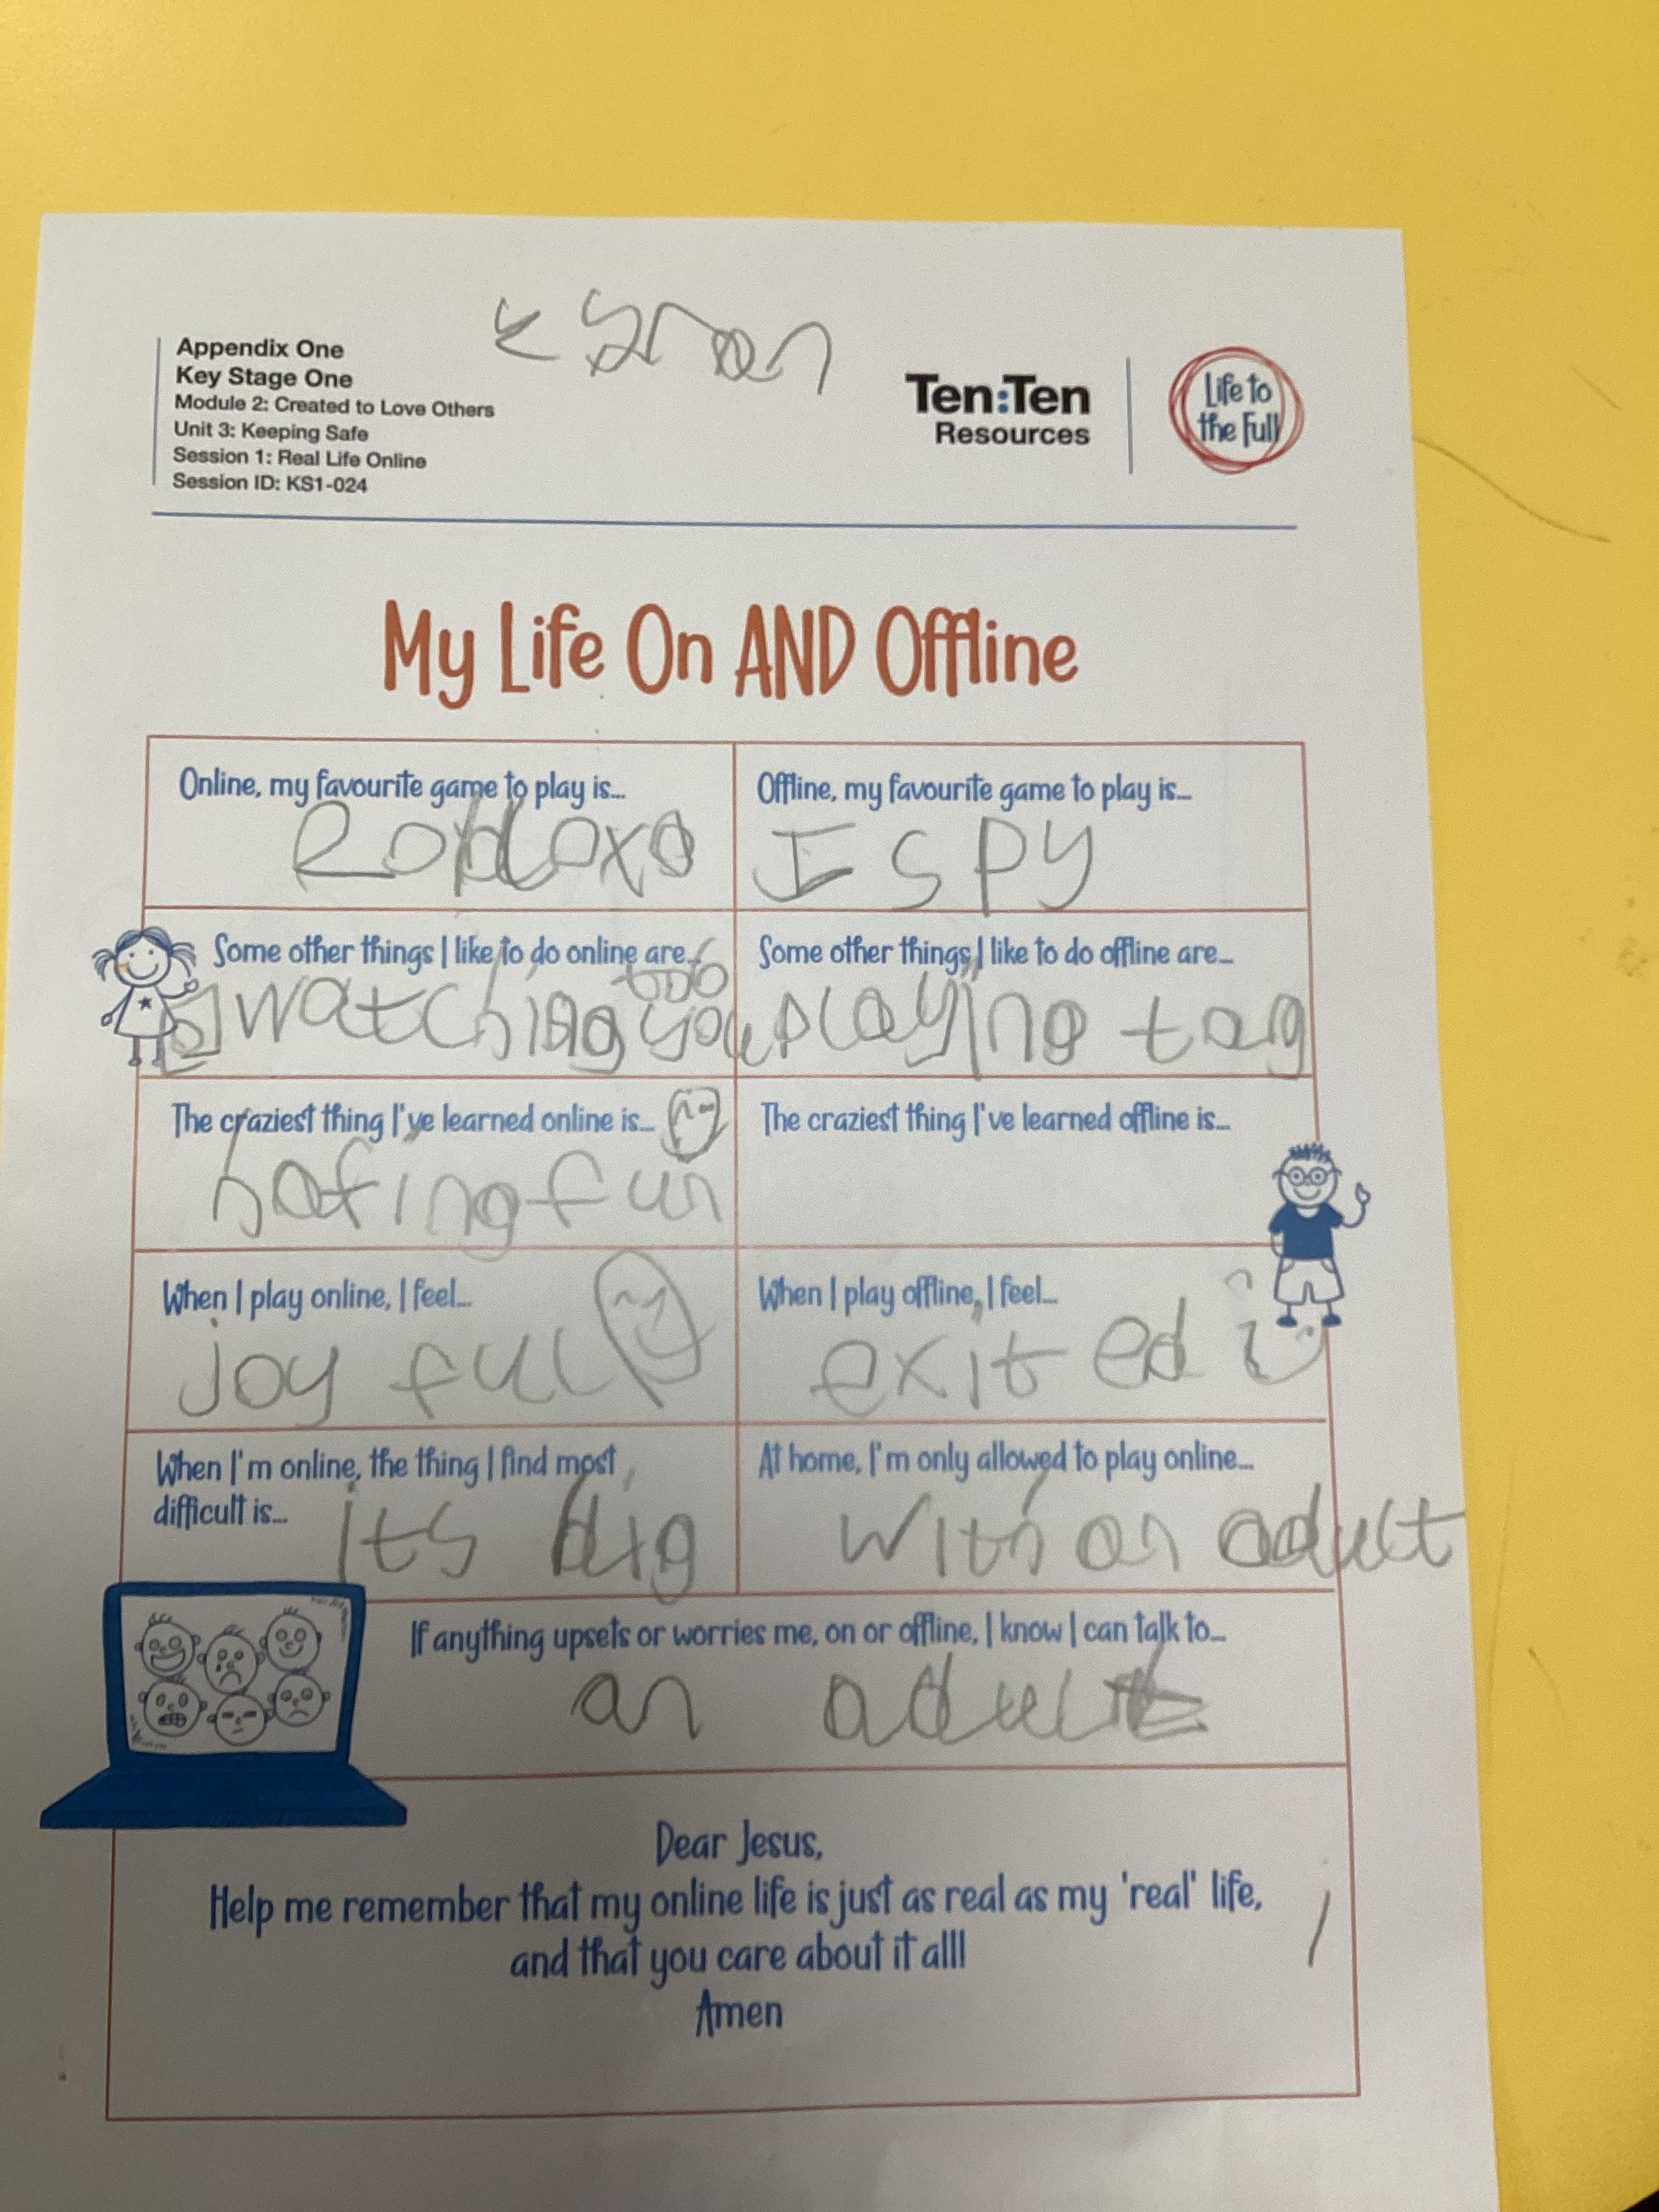 Appendix One
Key Stage One
Module 2: Created to Love Others
Unit 3: Keeping Safe
Session 1: Real Life Online
Session ID: KS1-024
Ten:Ten
Resources
Life to
the Full
My Life On AND Offline
Online, my favourite game to play is...
Offline, my favourite game to play is...
I spy
Some other things I like to do online are...
watching you
too
Some other things I like to do offline are...
playing tag
The craziest thing I've learned online is...
hafing fun
The craziest thing I've learned offline is...
When I play online, I feel...
joy full
When I play offline, I feel...
exited
When I'm online, the thing I find most
difficult is...
its big
At home, I'm only allowed to play online...
with an adult
If anything upsets or worries me, on or offline, I know I can talk to...
an adult
Dear Jesus,
Help me remember that my online life is just as real as my 'real' life,
and that you care about it all!
Amen